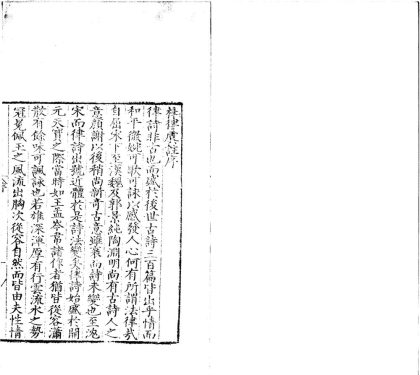 杜律虞註序
律詩非古也而盛於後世古詩三百篇皆出乎情而
和平微婉可歌可詠以感發人心何有所謂法律哉
自屈宋下至漢魏及郭景純陶淵明尚有古詩人之
意顔謝以後稍尚新奇古意雖衰而詩未變也至沈
宋而律詩出號近體於是詩法變矣律詩始盛於開
元天寶之際當時如王孟岑韋諸作者猶皆從容蕭
散有餘味可諷詠也若雄深渾厚有行雲流水之勢
冠冕佩玉之風流出胸次從容自然而皆由夫性情